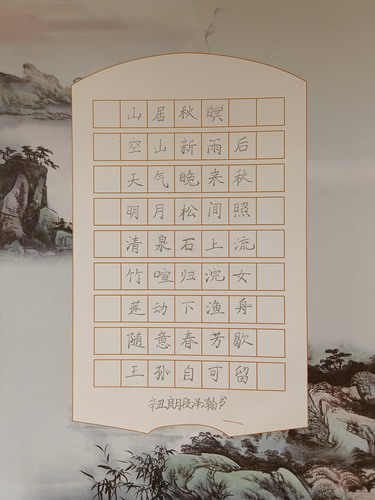 山居秋暝
空山新雨后
天气晚来秋
明月松间照
清泉石上流
竹喧归浣女
莲动下渔舟
随意春芳歇
王孙自可留
辛丑